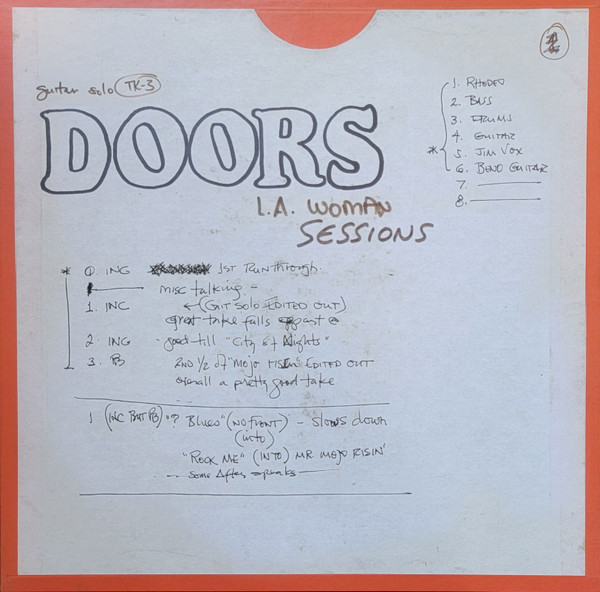 guitar solo TK-3
DOORS
L.A. WOMAN
SESSIONS
* 1. RHODES
2. BASS
3. DRUMS
4. GUITAR
5. JIM VOX
6. BENO GUITAR
7.
8.
* 0 ING 1ST RUN through.
misc talking -
1. INC ← (GIT SOLO EDITED OUT)
great take falls apart @
2. ING - good till "City of Nights"
3. PB 2ND 1/2 of "Mojo RISIN" EDITED OUT
overall a pretty good take
1 (INC BUT PB) "? Blues" (NO FRONT) - slows down
(into)
"ROCK ME" (INTO) MR MOJO RISIN'
-- Some After speaks